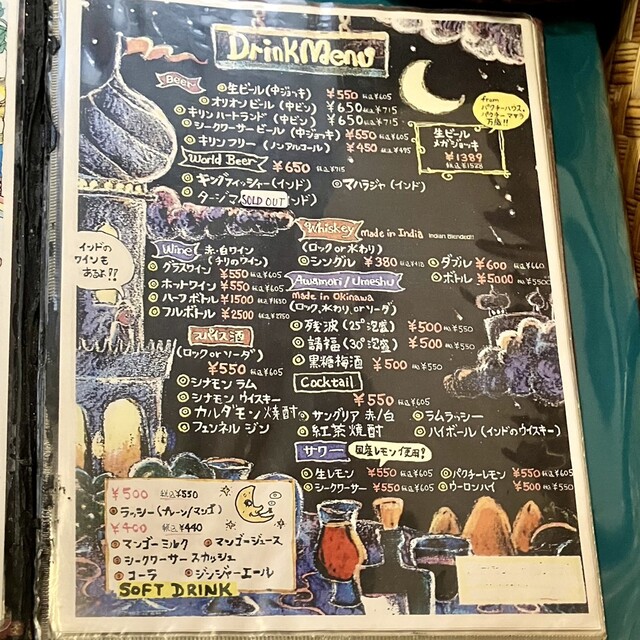 Drink Menu
Beer
◎生ビール(中ジョッキ) ¥550 税込¥605
◎オリオンビール(中ビン) ¥650 税込¥715
◎キリンハートランド(中ビン) ¥650 税込¥715
◎シークワーサービール(中ジョッキ) ¥550 税込¥605
◎キリンフリー(ノンアルコール) ¥450 税込¥495
from
パクチーハウス。
パクチーマサラ
万歳!!
生ビール
メガジョッキ
¥1389
税込¥1528
World Beer ¥650 税込¥715
◎キングフィッシャー(インド) ◎マハラジャ(インド)
◎タージマ SOLD OUT ンド)
インドの
ワインも
あるよ!?
Wine 赤・白ワイン
(チリのワイン)
◎グラスワイン ¥550 税込¥605
◎ホットワイン ¥550 税込¥605
◎ハーフボトル ¥1500 税込¥1650
◎フルボトル ¥2500 税込¥2750
Whiskey made in India Indian Blended!!
(ロック or 水わり)
◎シングル ¥380 税込¥418 ◎ダブル ¥600 税込¥660
◎ボトル ¥5000 税込¥5500
Awamori/Umeshu
made in Okinawa
(ロック、水わり、or ソーダ)
◎残波(25°泡盛) ¥500 税込¥550
◎請福(30°泡盛) ¥500 税込¥550
◎黒糖梅酒 ¥500 税込¥550
スパイス酒
(ロック or ソーダ)
¥550 税込¥605
◎シナモン ラム
◎シナモン ウイスキー
◎カルダモン焼酎
◎フェンネル ジン
Cocktail
¥550 税込¥605
◎サングリア 赤/白 ◎ラムラッシー
◎紅茶焼酎 ◎ハイボール(インドのウイスキー)
サワー 国産レモン使用!
◎生レモン ¥550 税込¥605 ◎パクチーレモン ¥550 税込¥605
◎シークワーサー ¥550 税込¥605 ◎ウーロンハイ ¥500 税込¥550
¥500 税込¥550
◎ラッシー(プレーン/マンゴ)
¥400 税込¥440
◎マンゴーミルク ◎マンゴージュース
◎シークワーサースカッシュ
◎コーラ ◎ジンジャーエール
SOFT DRINK